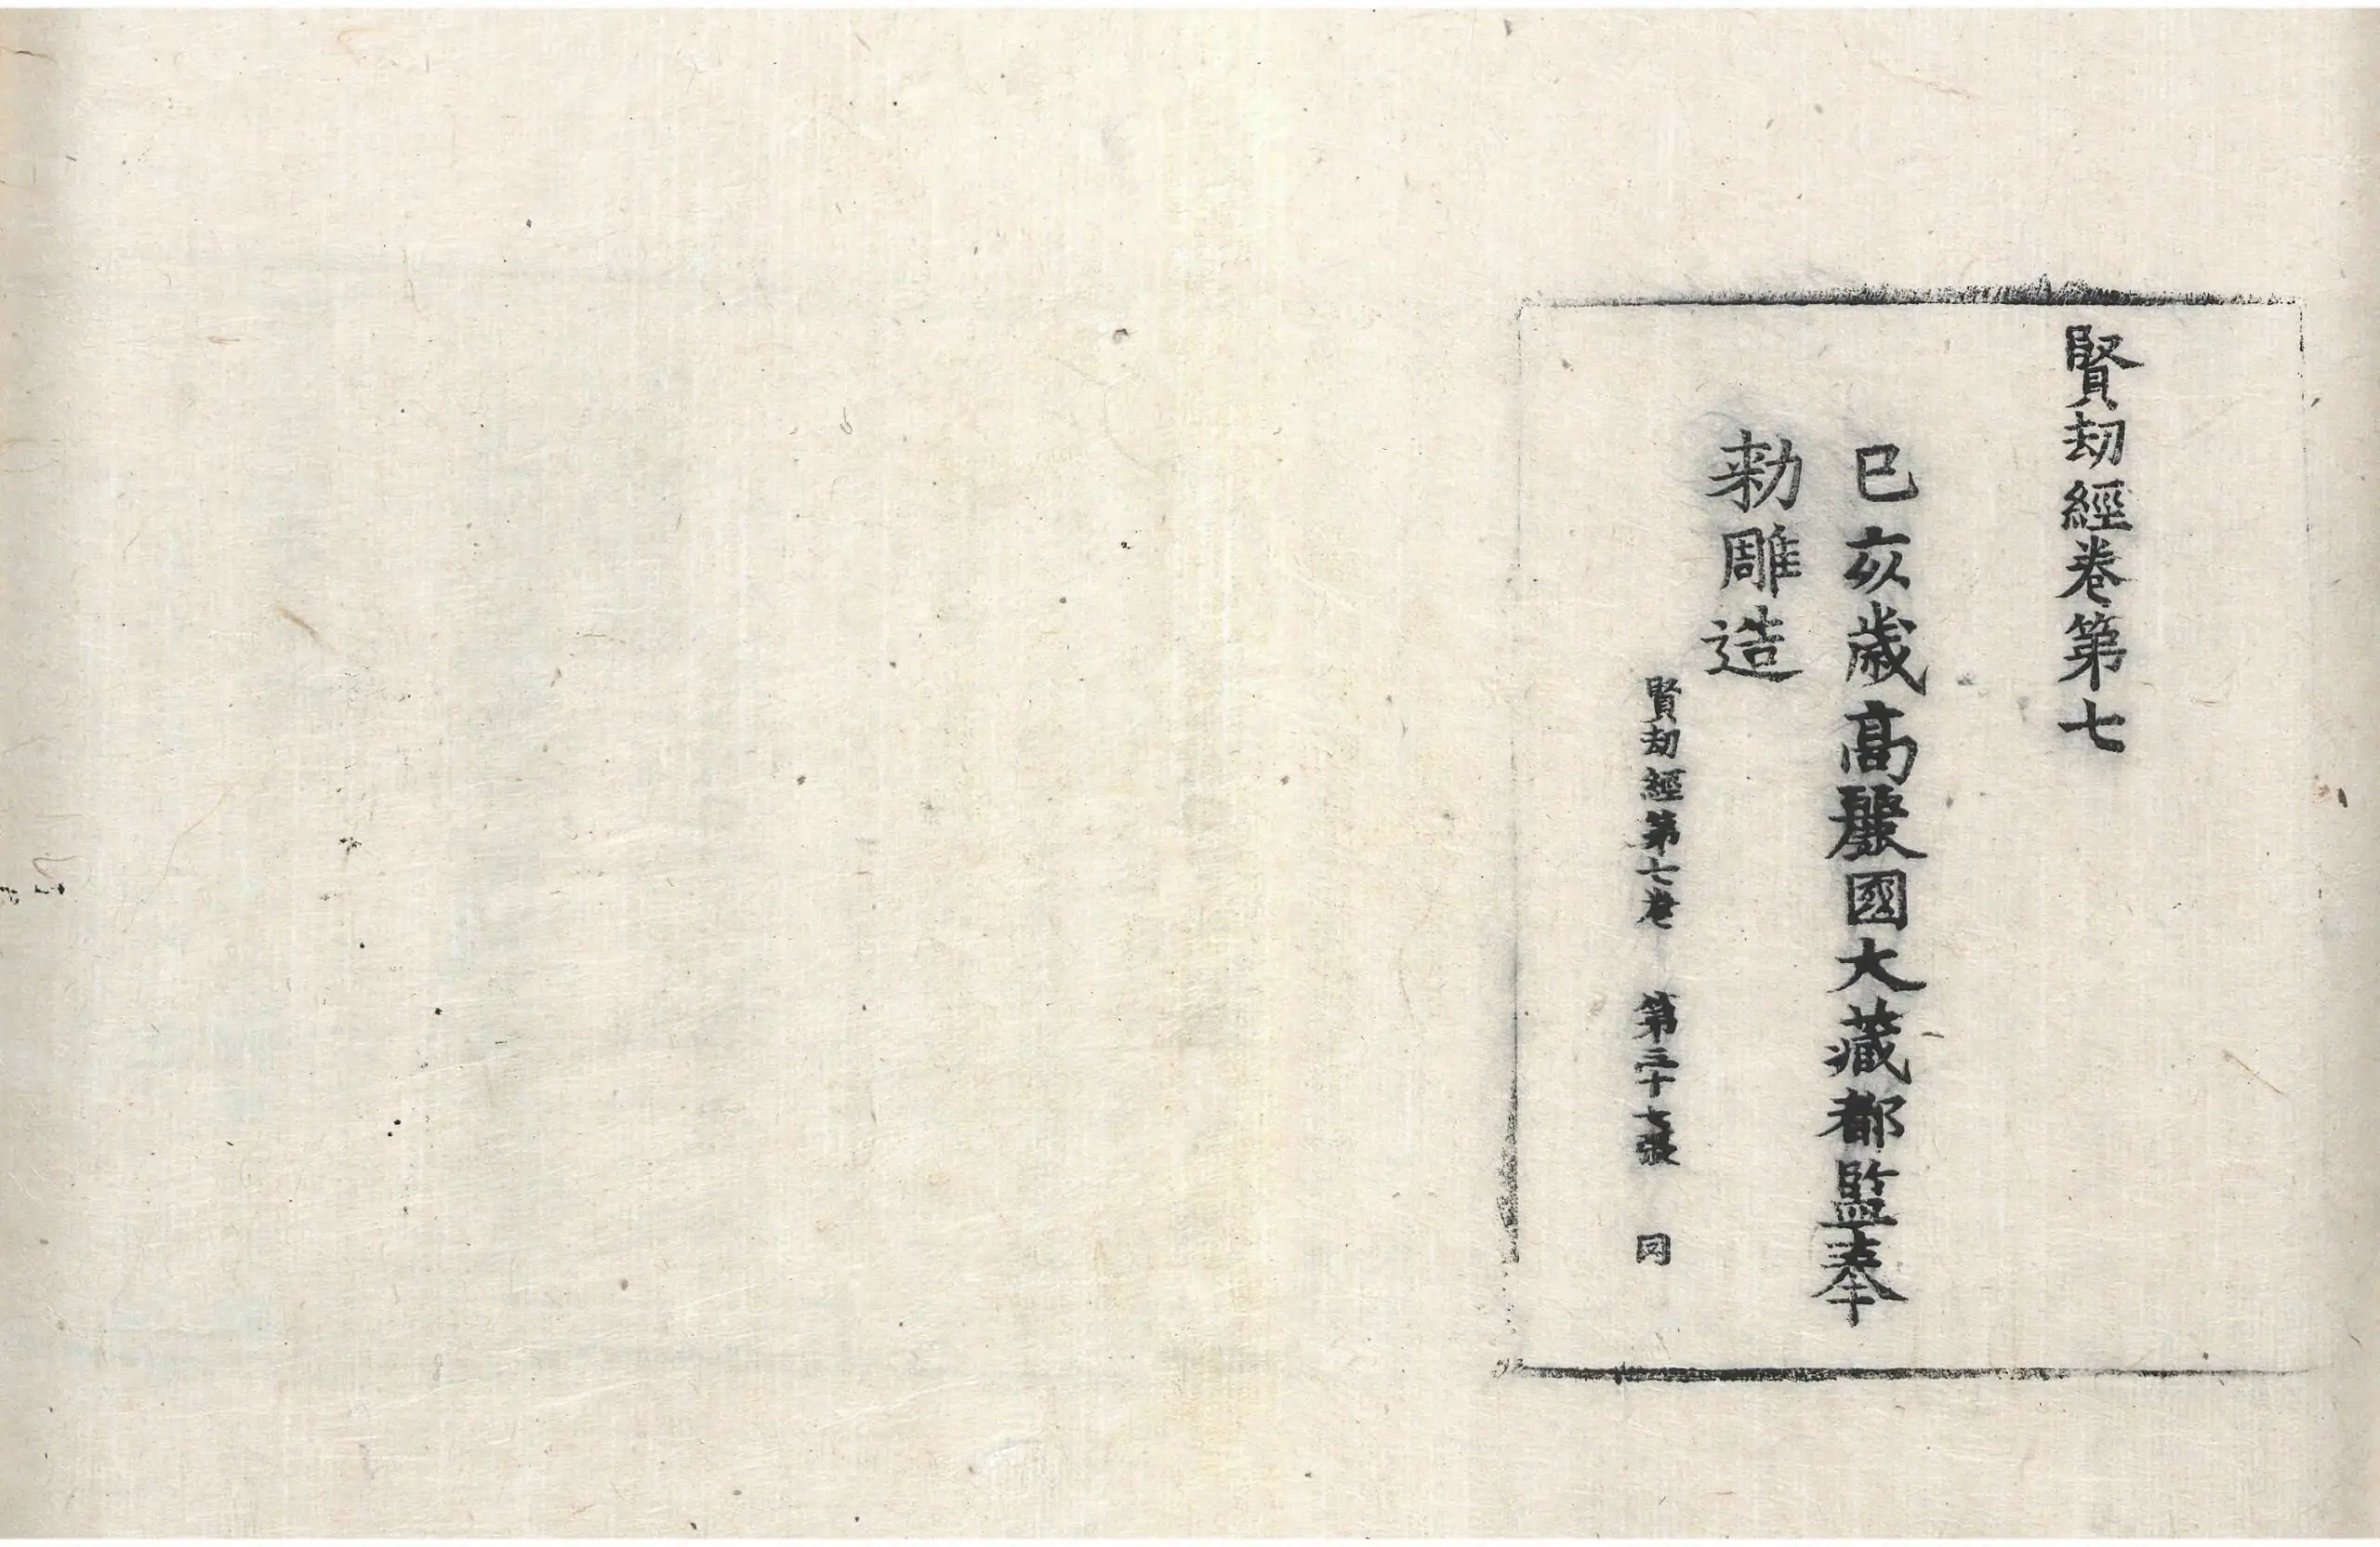 賢劫經卷第七
己亥歲高麗國大藏都監奉
勅雕造
賢劫經第七卷 第三十七張 同